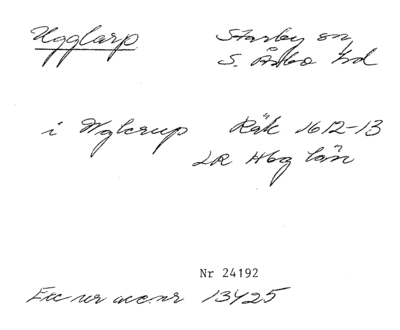 Ugglarp Starby sn
S. Åsbo hd
i Uglerup Räk 1612-13
LR Hbg län
Nr 24192
Exc ur acc nr 13425